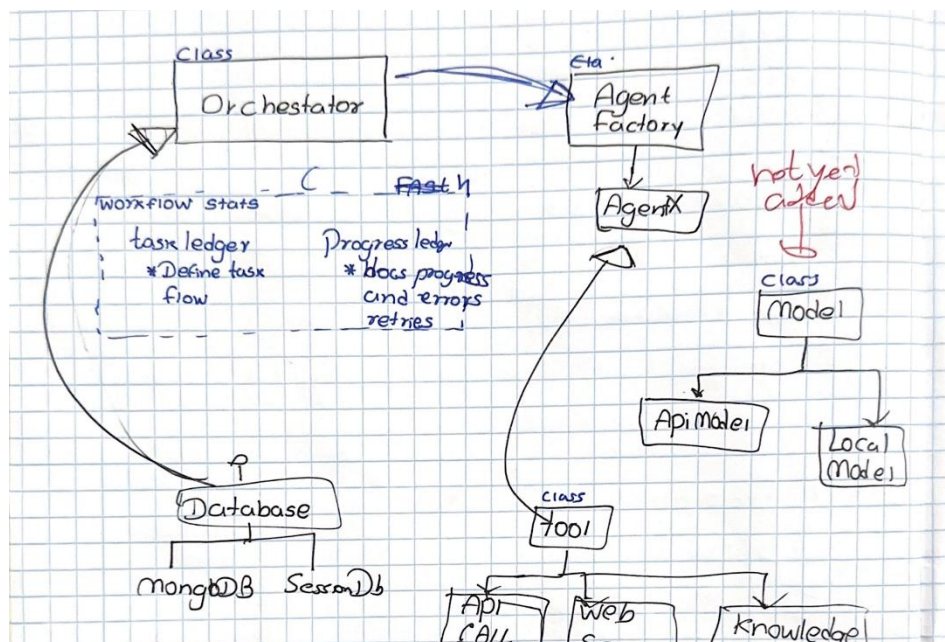 Class
Orchestator
Cla.
Agent
factory
AgentX
not yed
added
workflow stats
task ledger
*Define task
flow
Progress ledger
* docs progress
and errors
retries
Class
Model
Api Model
Local
Model
Database
MongoDB
SessonDb
Class
Tool
Api
CALL
Web
Knowledge